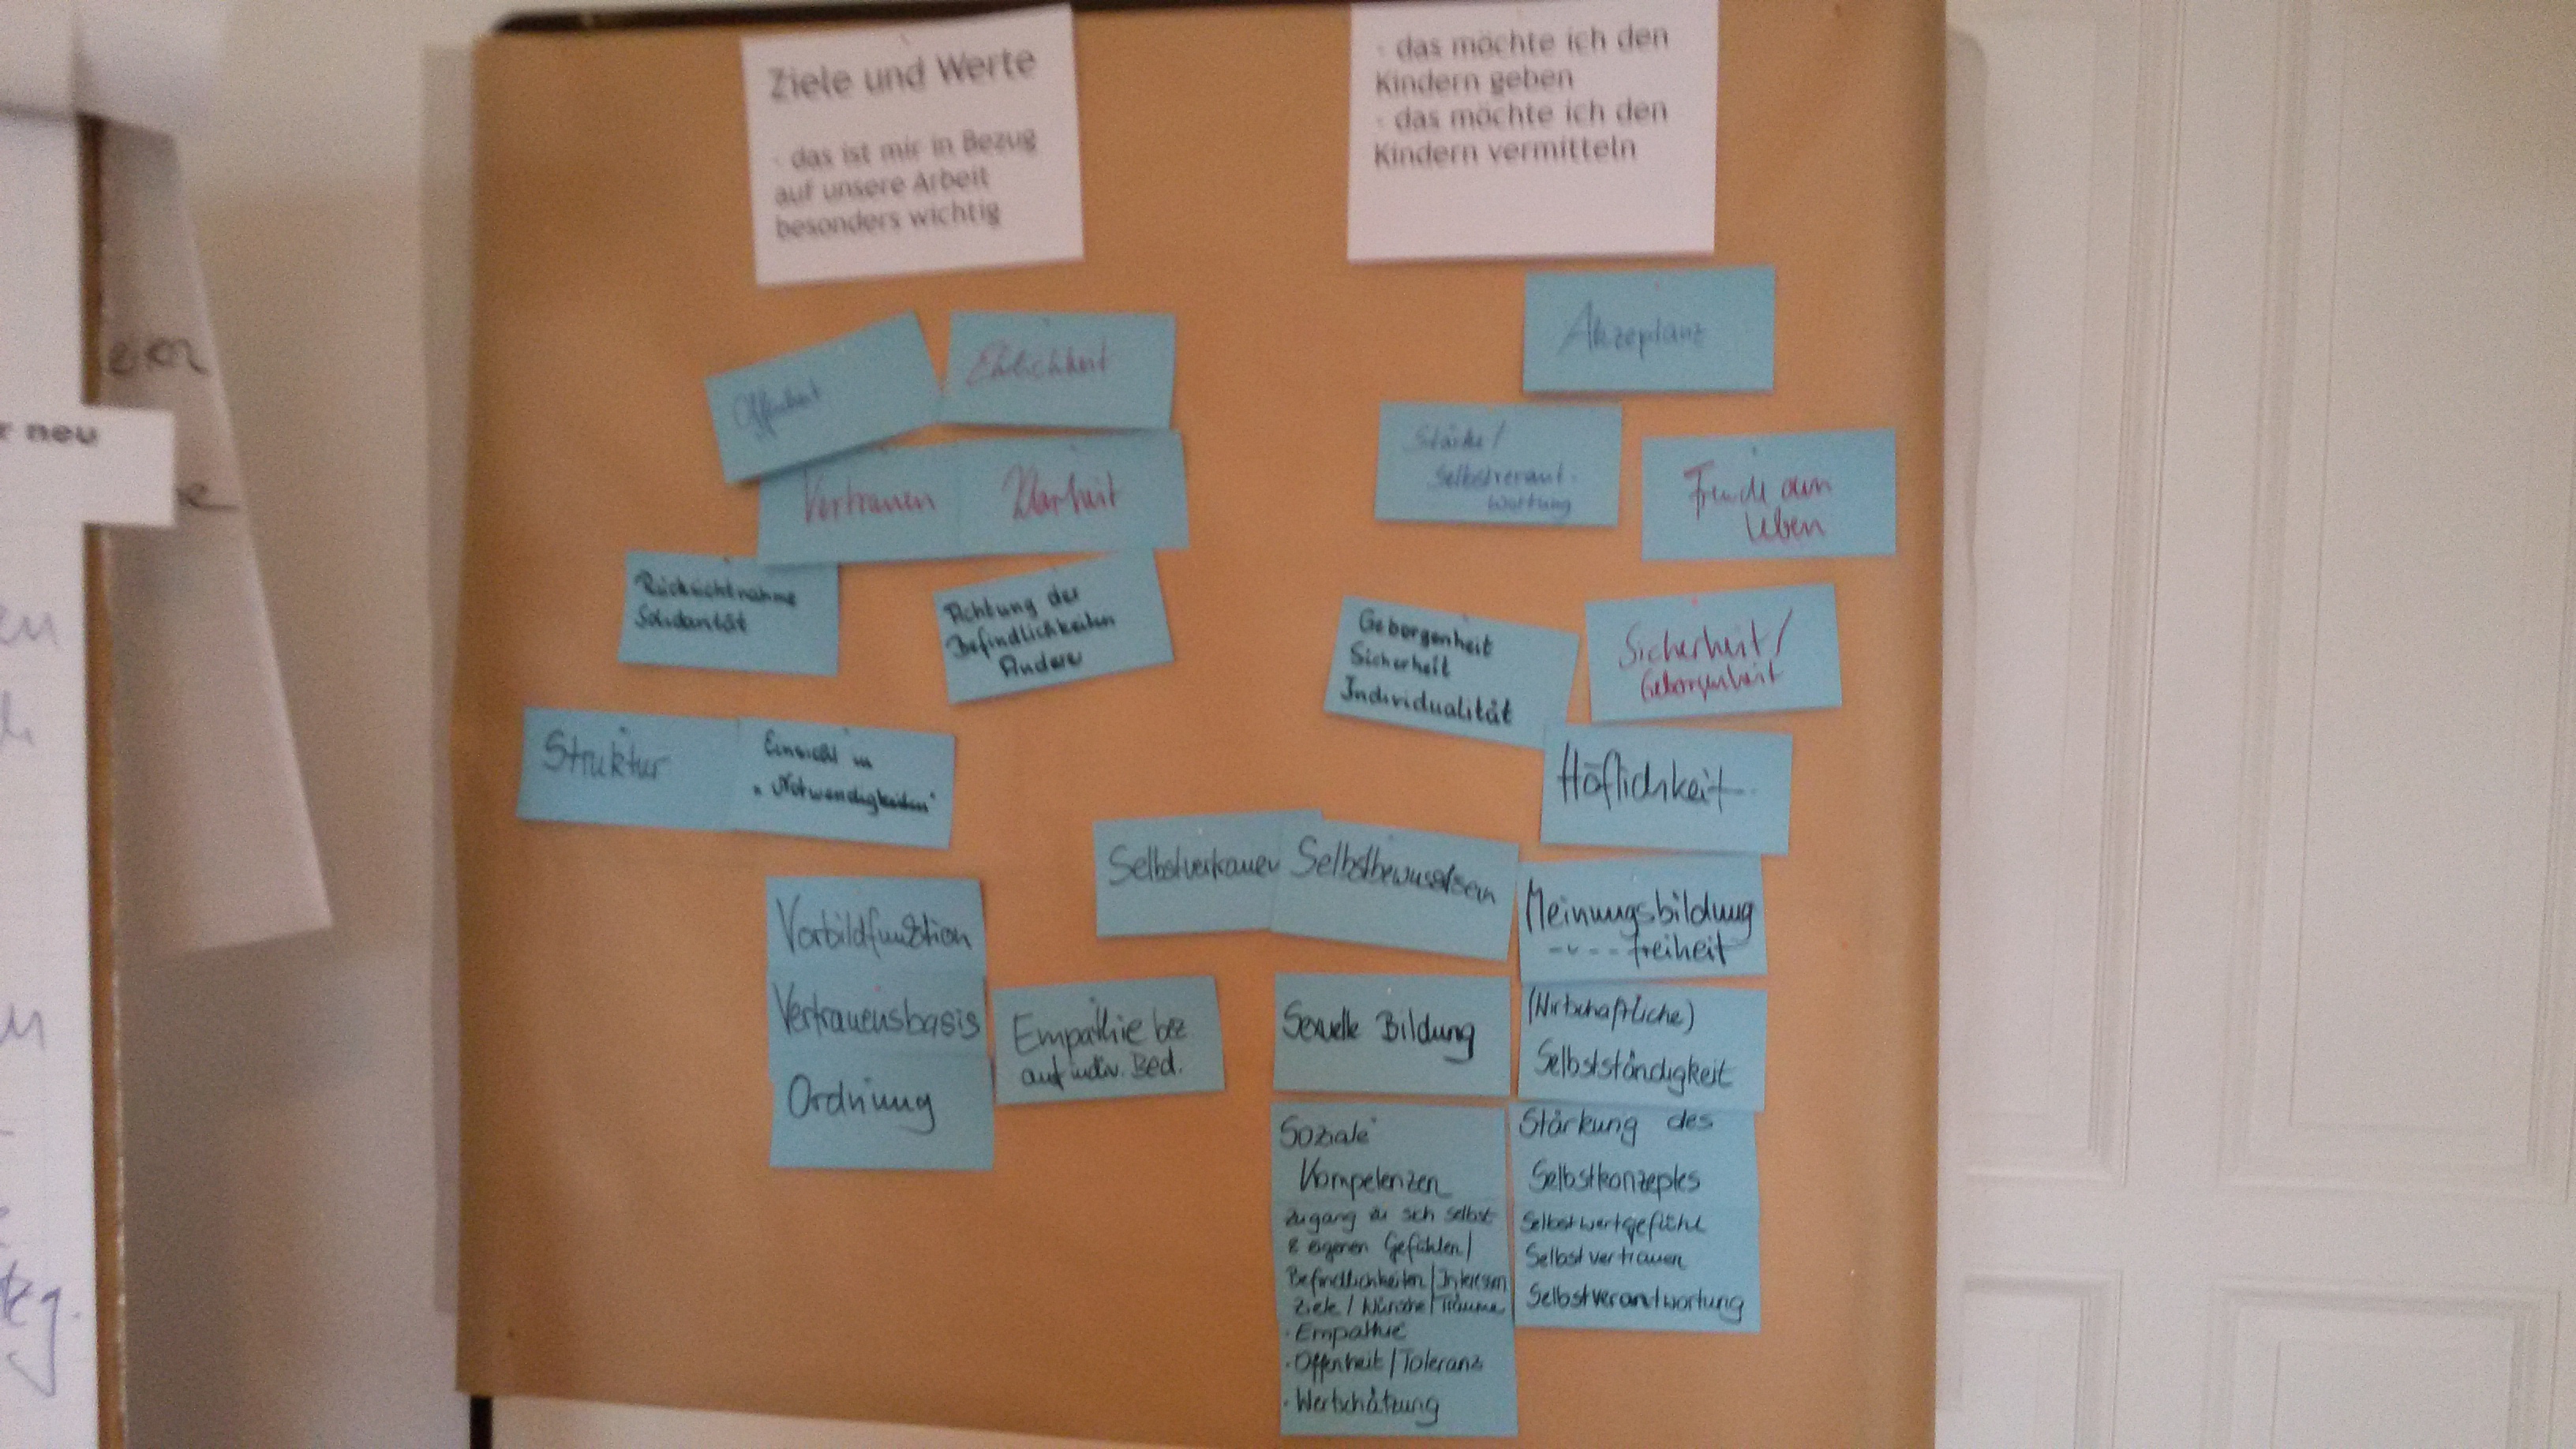 Ziele und Werte
- das ist mir in Bezug
auf unsere Arbeit
besonders wichtig
Offenheit
Ehrlichkeit
Vertrauen
Klarheit
Rücksichtnahme
Solidarität
Achtung der
Befindlichkeiten
Anderer
Struktur
Einsicht in
"Notwendigkeiten"
Vorbildfunktion
Vertrauensbasis
Ordnung
Empathie bez
auf indiv. Bed.
- das möchte ich den
Kindern geben
- das möchte ich den
Kindern vermitteln
Akzeptanz
Stärke/
Selbstverant-
wortung
Freude am
Leben
Geborgenheit
Sicherheit
Individualität
Sicherheit/
Geborgenheit
Höflichkeit
Selbstvertrauen
Selbstbewusstsein
Meinungsbildung
-"--- freiheit
Sexuelle Bildung
(Wirtschaftliche)
Selbstständigkeit
Soziale
Kompetenzen
Zugang zu sich selbst
& eigenen Gefühlen/
Befindlichkeiten/Interessen
Ziele/Wünsche/Träume
· Empathie
· Offenheit/Toleranz
· Wertschätzung
Stärkung des
Selbstkonzeptes
Selbstwertgefühl
Selbstvertrauen
Selbstverantwortung
neu